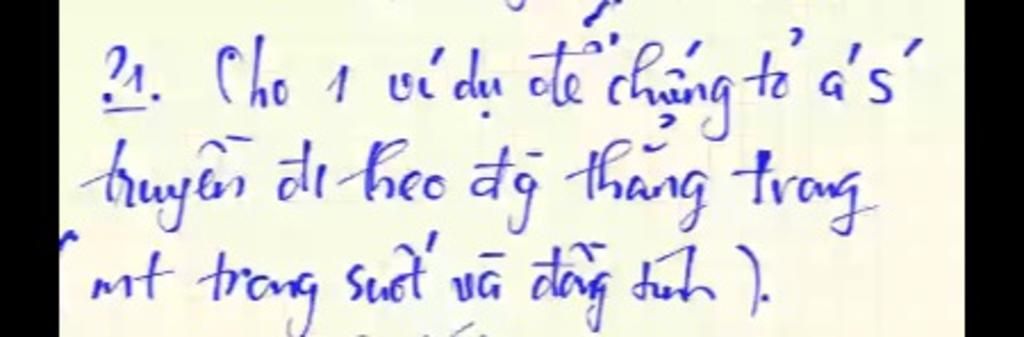 ?1. Cho 1 ví dụ để chứng tỏ a's'
truyền đi theo đg thẳng trong
mt trong suốt và đồng tính).